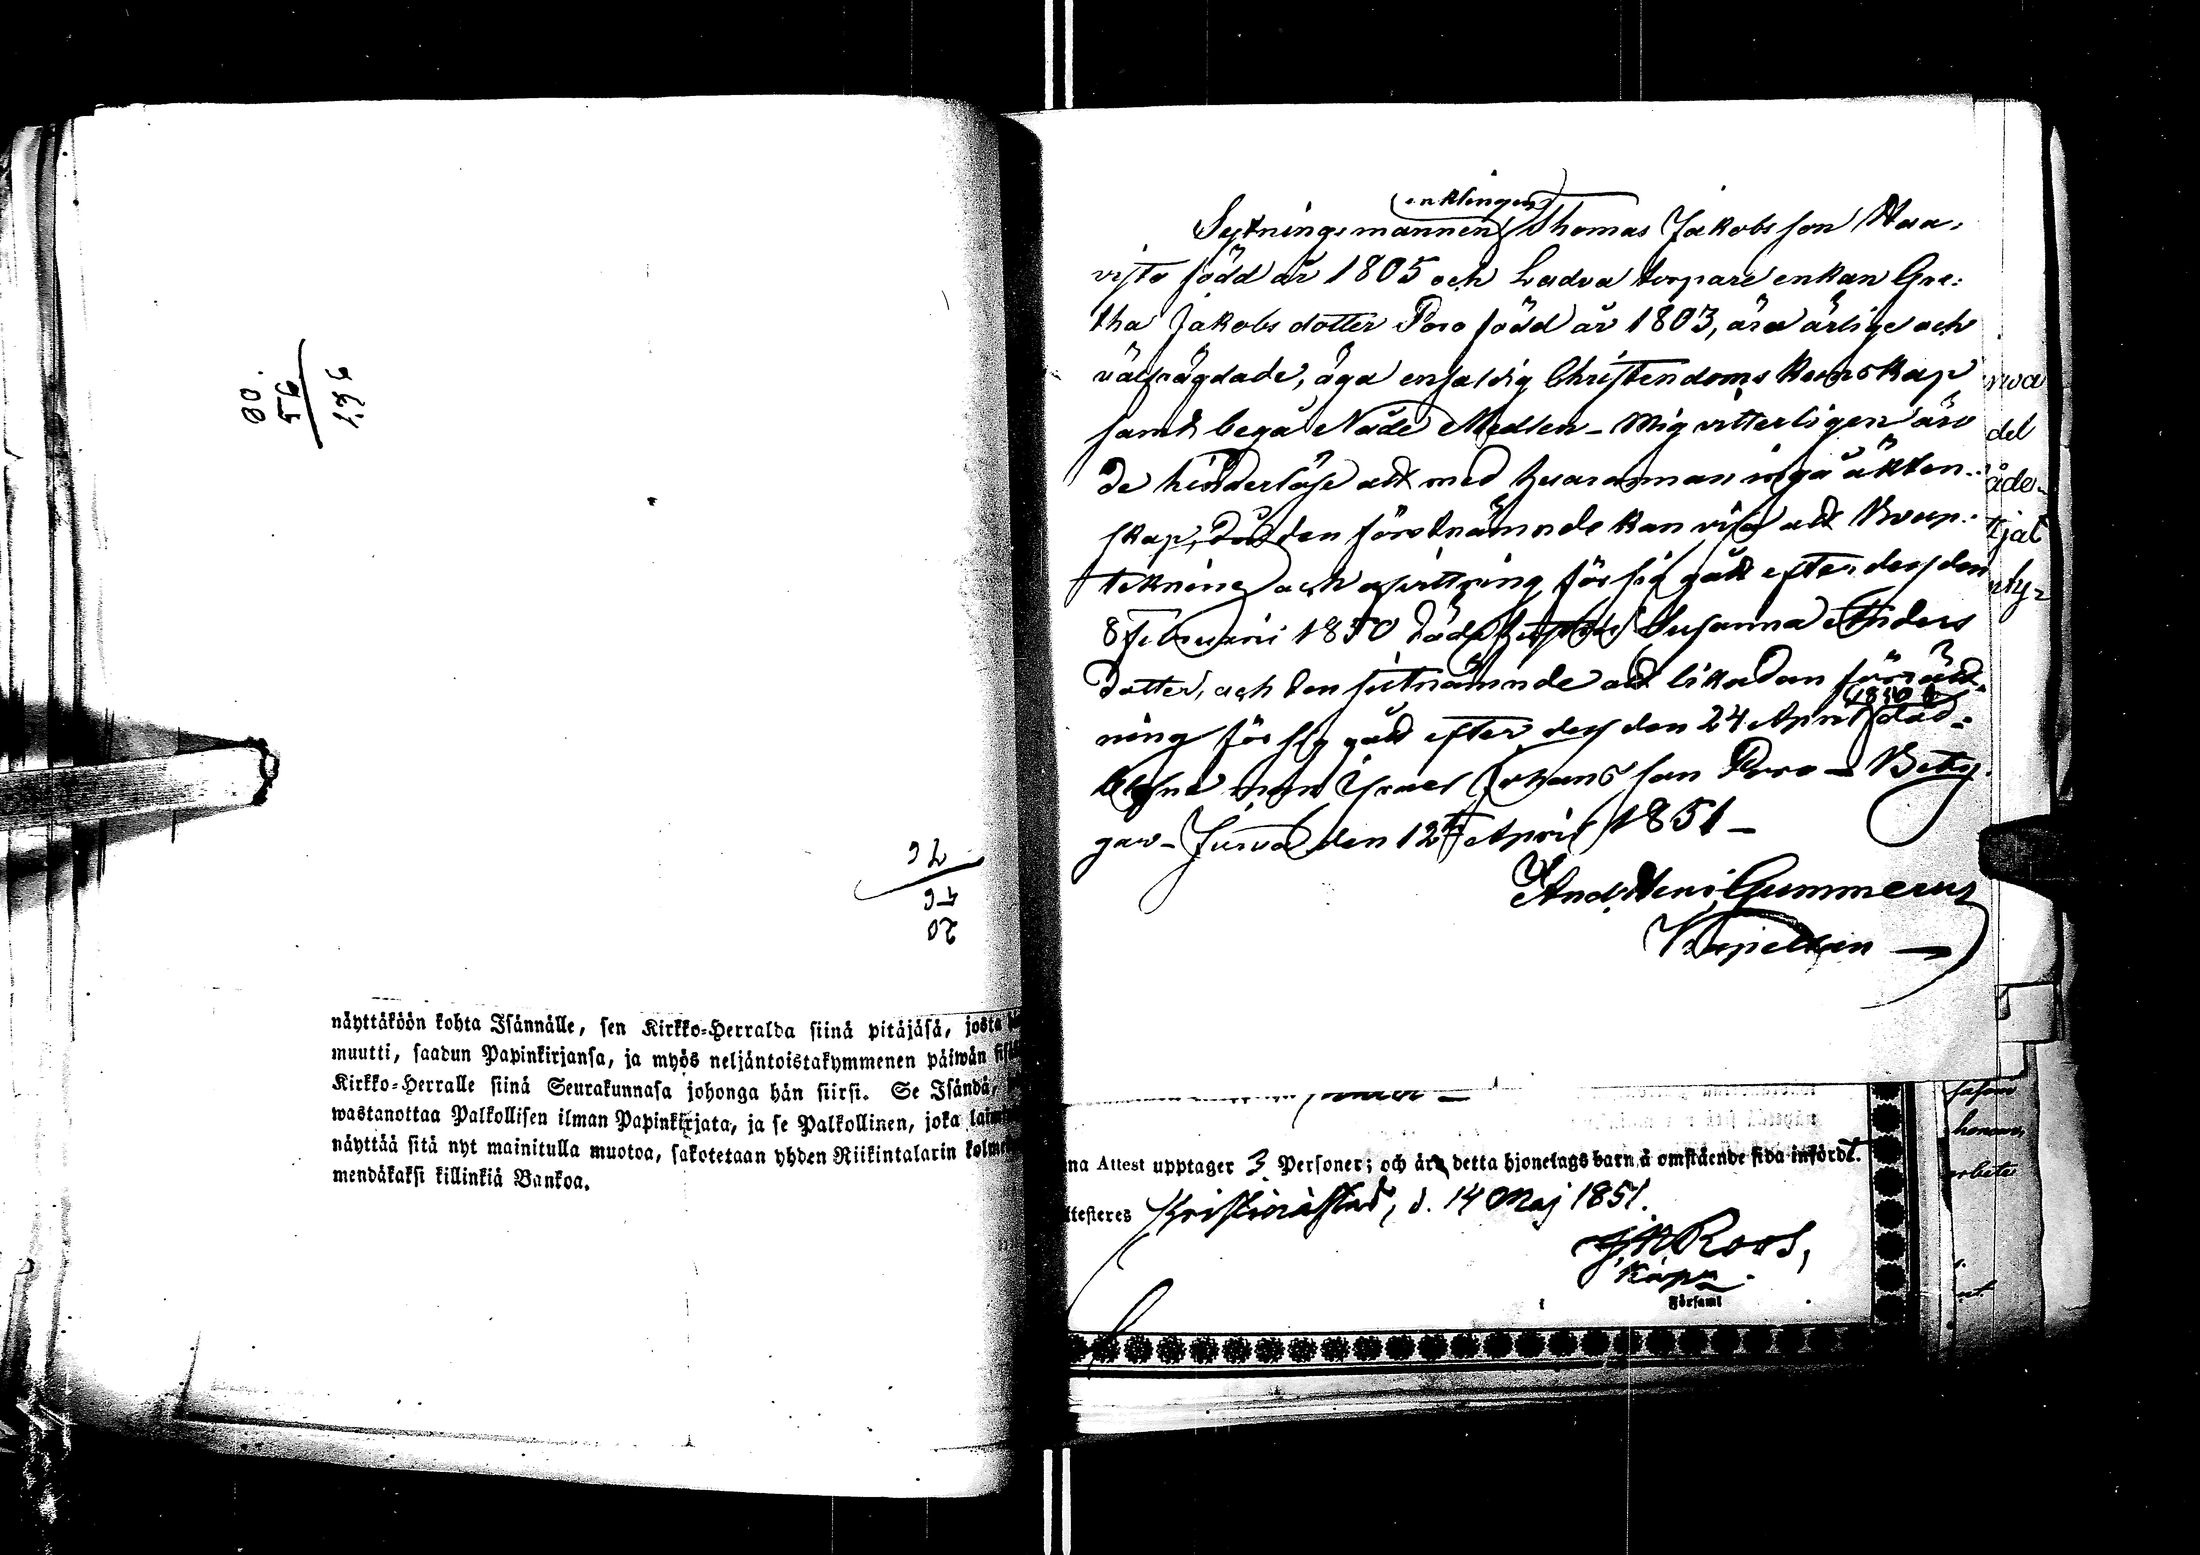 80.
56
136
76
56
20
näyttäköön kohta Isännälle, sen Kirkko-Herralda siinä pitäjäsä, josta
muutti, saadun Papinkirjansa, ja myös neljäntoistakymmenen päiwän
Kirkko-Herralle siinä Seurakunnasa johonga hän siirsi. Se Isändä,
wastanottaa Palkollisen ilman Papinkirjata, ja se Palkollinen, joka
näyttää sitä nyt mainitulla muotoa, sakotetaan yhden Riikintalarin
mendäkaksi killinkiä Bankoa.
enklingen
Sytningsmannen Thomas Jakobsson Haa-
visto född år 1805 och torpare enkan Gre-
tha Jakobsdotter Poro född år 1803, äro ärlige och
välfrägdade, äga enfaldig Christendoms kunskap
samt begå Nåde Medlen - Mig vitterligen äro
de hinderlöse att med hvarannan ingå äkten-
skap, då den förstnämnde kan visa att Boup-
tekning och afvittring för sig gått efter dess den
8 Februarii 1850 döda hustru Susanna Anders
dotter, och den sistnämnde att likadan förrätt-
ning för sig gått efter dess den 24 April 1850 död-
blefne man Israel Johansson Poro - Bety-
gar - Jurva den 12te April 1851 -
And. Henr. Gummerus
Kapellan
rwa
del
åde-
tjat
na Attest upptager 3 Personer; och äro detta hjonelags barn å omstående sida införde.
ttesteres Kristinestad, d. 14 Maj 1851.
J. N. Roos,
Kapn.
Församl
honom,
arbete